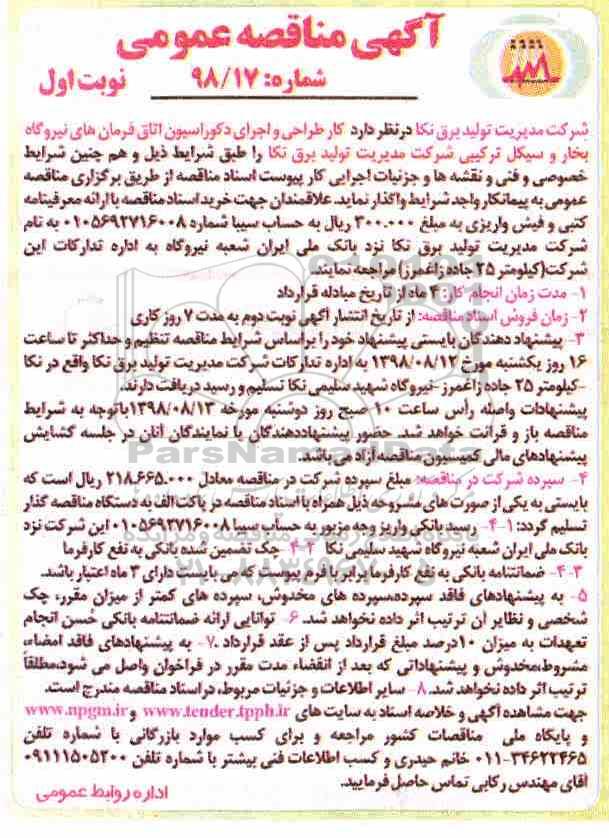 آگهی مناقصه عمومی
شماره: ۹۸/۱۷
نوبت اول
شرکت مدیریت تولید برق نکا درنظر دارد کار طراحی و اجرای دکوراسیون اتاق فرمان های نیروگاه
بخار و سیکل ترکیبی شرکت مدیریت تولید برق نکا را طبق شرایط ذیل و هم چنین شرایط
خصوصی و فنی و نقشه ها و جزئیات اجرایی کار پیوست اسناد مناقصه از طریق برگزاری مناقصه
عمومی به پیمانکار واجد شرایط واگذار نماید. علاقمندان جهت خرید اسناد مناقصه با ارائه معرفینامه
کتبی و فیش واریزی به مبلغ ۳۰۰.۰۰۰ ریال به حساب سیبا شماره ۰۱۰۵۶۹۲۷۱۶۰۰۸ به نام
شرکت مدیریت تولید برق نکا نزد بانک ملی ایران شعبه نیروگاه به اداره تدارکات این
شرکت(کیلومتر ۲۵ جاده زاغمرز) مراجعه نمایند.
۱- مدت زمان انجام کار: ۴ ماه از تاریخ مبادله قرارداد
۲- زمان فروش اسناد مناقصه: از تاریخ انتشار آگهی نوبت دوم به مدت ۷ روز کاری
۳- پیشنهاد دهندگان بایستی پیشنهاد خود را بر اساس شرایط مناقصه تنظیم و حداکثر تا ساعت
۱۶ روز یکشنبه مورخ ۱۳۹۸/۰۸/۱۲ به اداره تدارکات شرکت مدیریت تولید برق نکا واقع در نکا
-کیلومتر ۲۵ جاده زاغمرز -نیروگاه شهید سلیمی نکا تسلیم و رسید دریافت دارند.
پیشنهادات واصله رأس ساعت ۱۰ صبح روز دوشنبه مورخه ۱۳۹۸/۰۸/۱۳ باتوجه به شرایط
مناقصه باز و قرائت خواهد شد. حضور پیشنهاددهندگان یا نمایندگان آنان در جلسه گشایش
پیشنهادهای مالی کمیسیون مناقصه آزاد می باشد.
۴- سپرده شرکت در مناقصه: مبلغ سپرده شرکت در مناقصه معادل ۲۱۸.۶۶۵.۰۰۰ ریال است که
بایستی به یکی از صورت های مشروحه ذیل همراه با اسناد مناقصه در پاکت الف به دستگاه مناقصه گذار
تسلیم گردد: ۱-۴- رسید بانکی واریز وجه مزبور به حساب سیبا ۰۱۰۵۶۹۲۷۱۶۰۰۸ این شرکت نزد
بانک ملی ایران شعبه نیروگاه شهید سلیمی نکا ۲-۴- چک تضمین شده بانکی به نفع کارفرما
۳-۴- ضمانتنامه بانکی به نفع کارفرما برابر با فرم پیوست که می بایست دارای ۳ ماه اعتبار باشد.
۵- به پیشنهادهای فاقد سپرده،سپرده های مخدوش، سپرده های کمتر از میزان مقرر، چک
شخصی و نظایر آن ترتیب اثر داده نخواهد شد. ۶- توانایی ارائه ضمانتنامه بانکی حُسن انجام
تعهدات به میزان ۱۰درصد مبلغ قرارداد پس از عقد قرارداد .۷- به پیشنهادهای فاقد امضاء،
مشروط،مخدوش و پیشنهاداتی که بعد از انقضاء مدت مقرر در فراخوان واصل می شود،مطلقاً
ترتیب اثر داده نخواهد شد. ۸- سایر اطلاعات و جزئیات مربوط، در اسناد مناقصه مندرج است.
جهت مشاهده آگهی و خلاصه اسناد به سایت های www.tender.tpph.ir و www.npgm.ir
و پایگاه ملی مناقصات کشور مراجعه و برای کسب موارد بازرگانی با شماره تلفن
۰۱۱-۳۴۶۲۲۴۶۵ خانم حیدری و کسب اطلاعات فنی بیشتر با شماره تلفن ۰۹۱۱۱۵۰۵۳۰۰
آقای مهندس رکابی تماس حاصل فرمایید.
اداره روابط عمومی
ParsNamadData